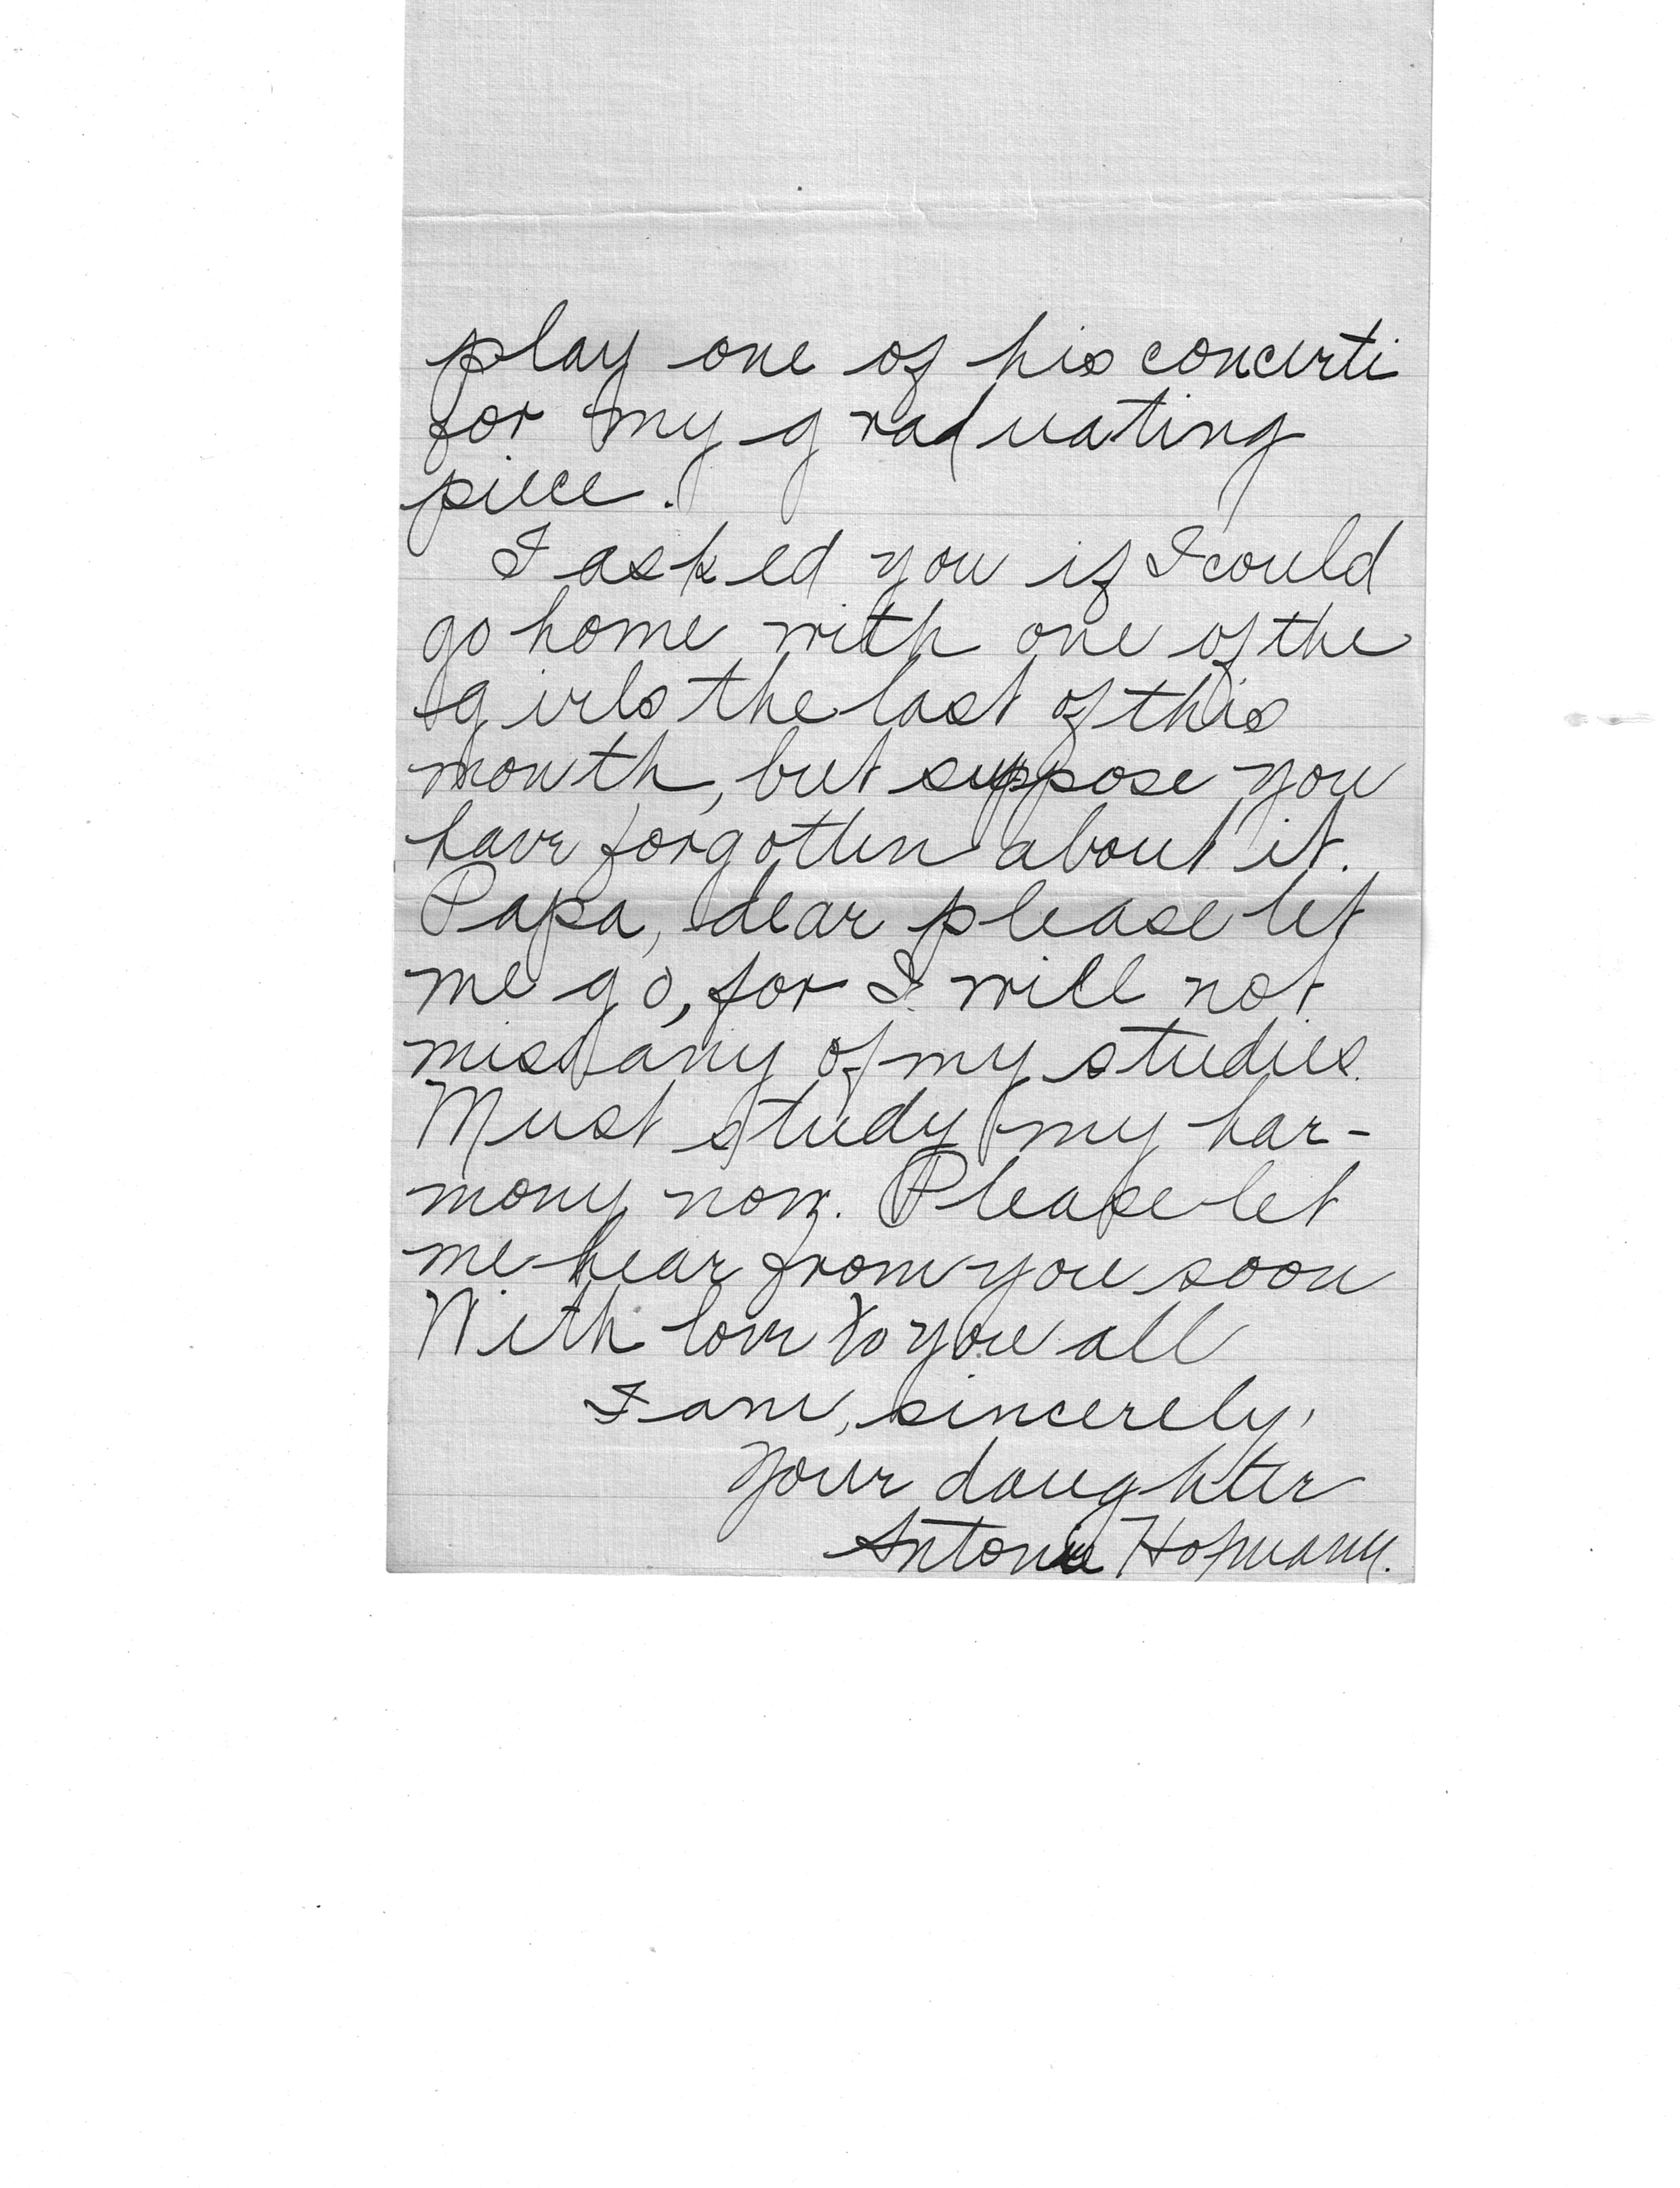 play one of his concerti
for my graduating
piece.
I asked you if I could
go home with one of the
girls the last of this
month, but suppose you
have forgotten about it.
Papa, dear please let
me go, for I will not
miss any of my studies.
Must study my har-
mony now. Please let
me hear from you soon
With love to you all
I am, sincerely,
Your daughter
Antonie Hofmann.